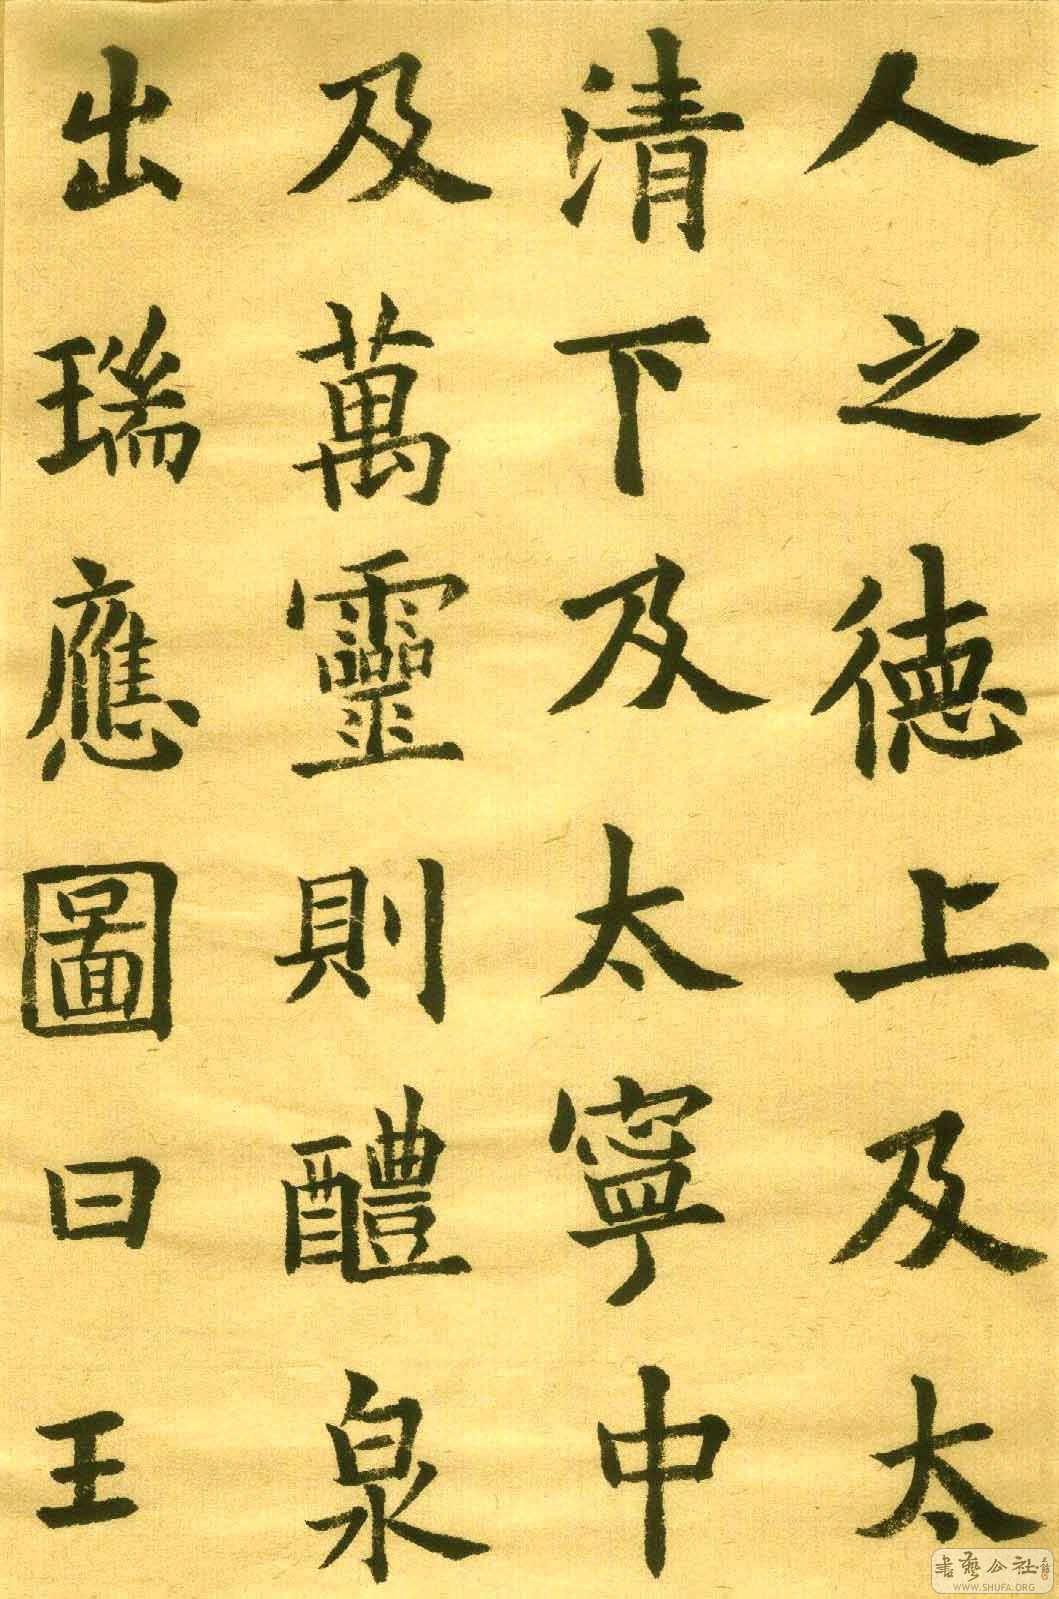 人之德上及太
清下及太寧中
及萬靈則醴泉
出瑞應圖曰王
書藝公社
WWW.SHUFA.ORG